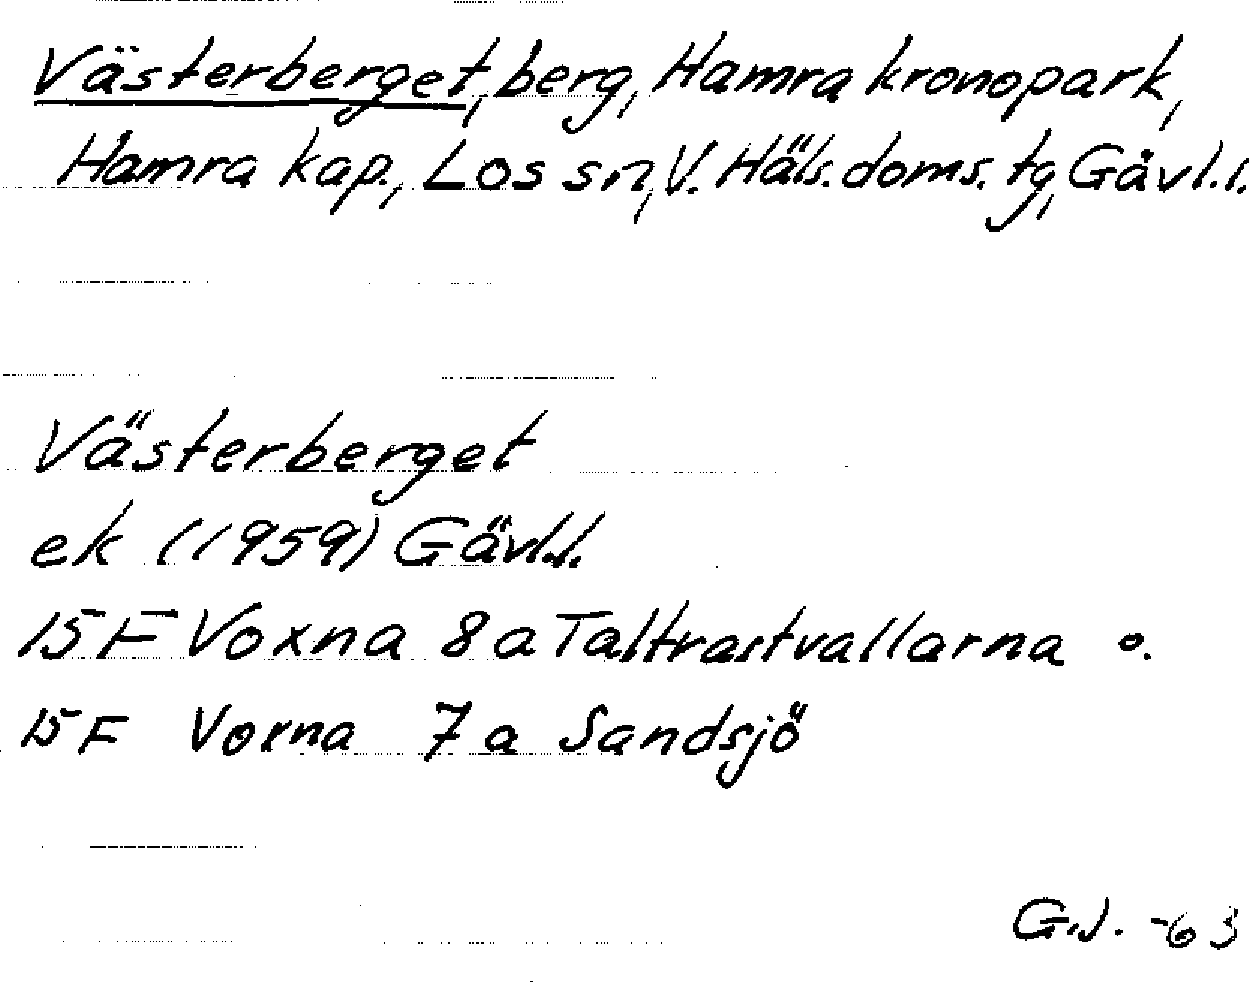 Västerberget, berg, Hamra kronopark,
Hamra kap., Los sn, V. Häls. doms. tg, Gävl.l.
Västerberget
ek (1959) Gävl.l.
15 F Voxna 8a Taltrastvallarna o.
15 F Voxna 7a Sandsjö
G.J. -63